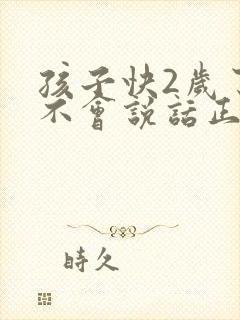 孩子快2歲
不會說話正
時久